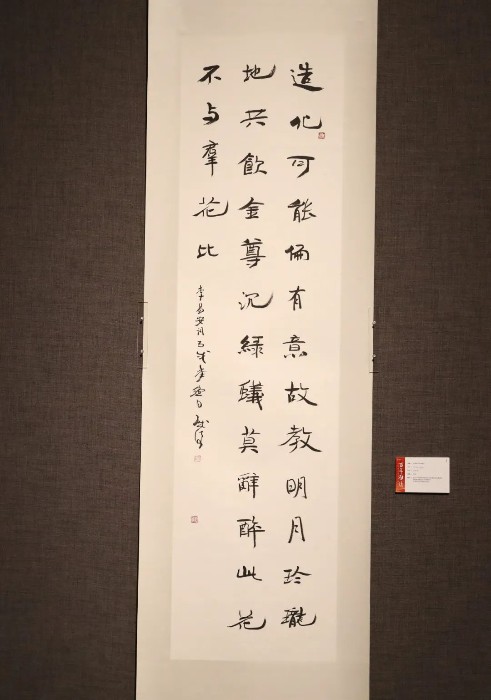 造化可能偏有意故教明月玲瓏
地共飲金尊沉綠蟻莫辭醉此花
不与羣花比
李易安词